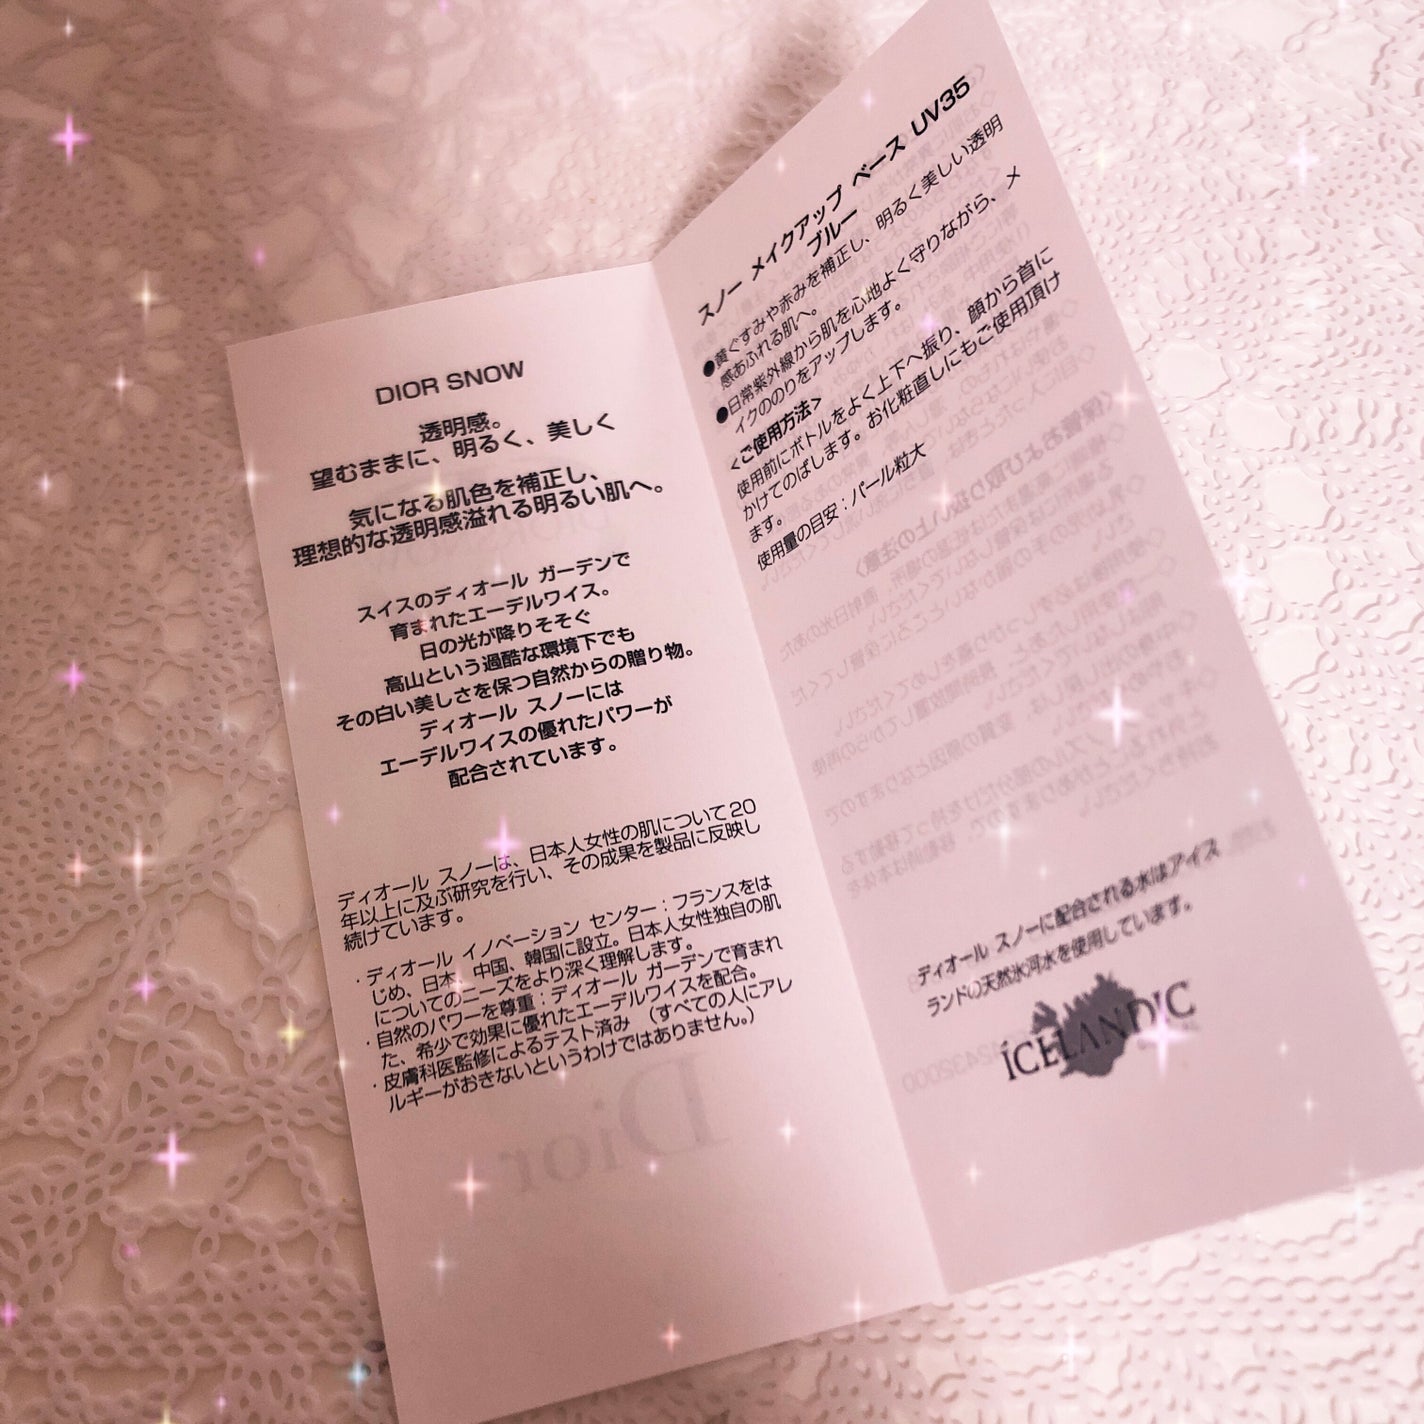 DIOR SNOW
透明感。
望むままに、明るく、美しく
気になる肌色を補正し、
理想的な透明感溢れる明るい肌へ。
スイスのディオール ガーデンで
育まれたエーデルワイス。
日の光が降りそそぐ
高山という過酷な環境下でも
その白い美しさを保つ自然からの贈り物。
ディオール スノーには
エーデルワイスの優れたパワーが
配合されています。
ディオール スノーは、日本人女性の肌について20
年以上に及ぶ研究を行い、その成果を製品に反映し
続けています。
・ディオール イノベーション センター：フランスをは
じめ、日本、中国、韓国に設立。日本人女性独自の肌
についてのニーズをより深く理解します。
・自然のパワーを尊重：ディオール ガーデンで育まれ
た、希少で効果に優れたエーデルワイスを配合。
・皮膚科医監修によるテスト済み （すべての人にアレ
ルギーがおきないというわけではありません。）
Dior
スノー メイクアップ ベース UV35
ブルー
●黄ぐすみや赤みを補正し、明るく美しい透明
感あふれる肌へ。
●日常紫外線から肌を心地よく守りながら、メ
イクののりをアップします。
<ご使用方法>
使用前にボトルをよく上下へ振り、顔から首に
かけてのばします。お化粧直しにもご使用頂け
ます。
使用量の目安：パール粒大
ディオール スノーに配合される水はアイス
ランドの天然氷河水を使用しています。
ICELANDIC